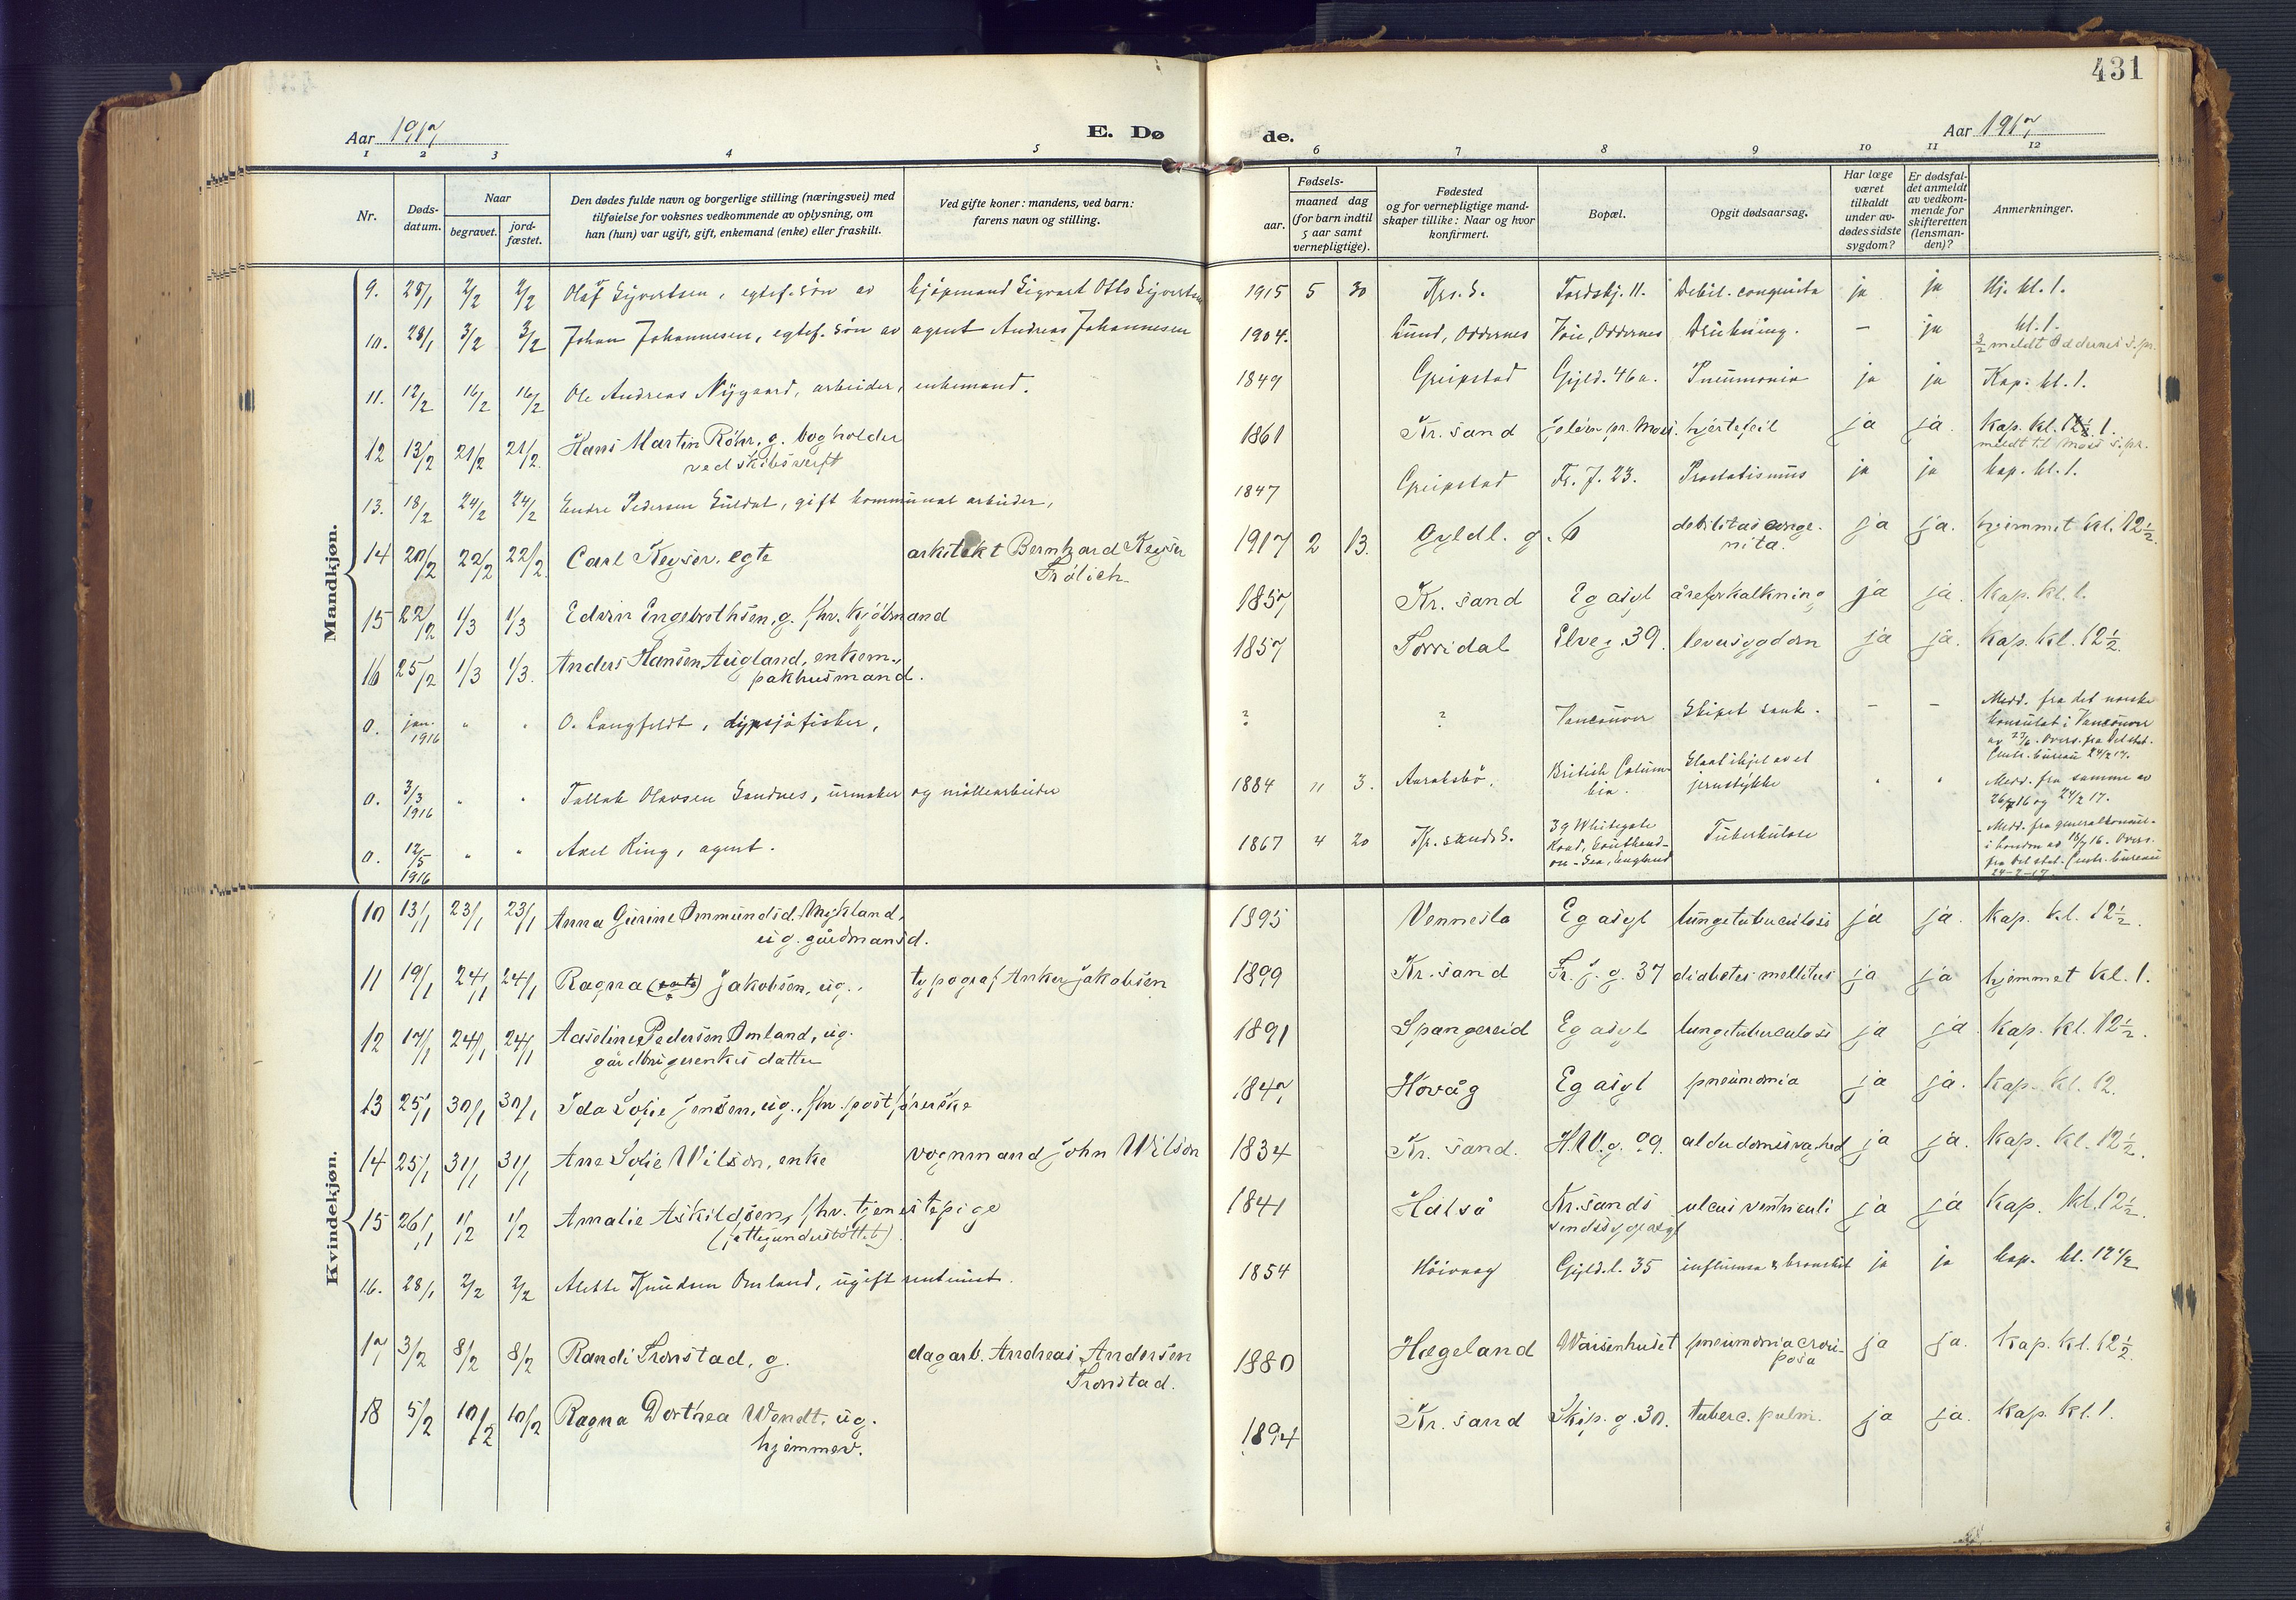 431
Aar 1917
E. Dø
de.
Aar 1917
1 2 3 4 5 6 7 8 9 10 11 12
Nr.
Døds-
datum.
Naar
begravet.
jord-
fæstet.
Den dødes fulde navn og borgerlige stilling (næringsvei) med
tilføielse for voksnes vedkommende av oplysning, om
han (hun) var ugift, gift, enkemand (enke) eller fraskilt.
Ved gifte koner: mandens, ved barn:
farens navn og stilling.
Fødsels-
aar.
maaned dag
(for barn indtil
5 aar samt
vernepligtige).
Fødested
og for vernepligtige mand-
skaper tillike: Naar og hvor
konfirmert.
Bopæl.
Opgit dødsaarsag.
Har læge
været
tilkaldt
under av-
dødes sidste
sygdom?
Er dødsfal-
det anmeldt
av vedkom-
mende for
skifteretten
(lensman-
den)?
Anmerkninger.
Mandkjøn.
9. 28/1 2/2 2/2 Olaf Syvertsen, egtef. søn av kjøpmand Sigvart Otto Syvertsen 1915 5 30 Krs. S. Tordskj. 11. Debil. congenita ja ja Hj. kl. 1.
10. 28/1 3/2 3/2 Johan Johannesen, egtef. søn av agent Andreas Johannesen 1904. Lund, Oddernes Voie, Oddernes Drukning. – ja kl. 1.
3/2 meldt Oddernes s.pr.
11. 12/2 16/2 16/2 Ole Andreas Nygaard, arbeider, enkemand. 1849 Greipstad Gyld. 46a. Pneumonia ja ja Kap. kl. 1.
12 13/2 21/2 21/2 Hans Martin Röhr, g. bogholder
ved skibsverft 1861 Kr. sand Jeløen pr. Moss. hjertefeil ja ja. Kap. kl. 1.
meldt til Moss s.pr.
13. 18/2 24/2 24/2 Endre Pedersen Suldal, gift kommunal arbeider, 1847 Greipstad Fr. J. 23. Prostatismus ja ja kap. kl. 1.
14 20/2 22/2 22/2 Carl Keyser, egte arkitekt Bernhard Keyser
Frølich 1917 2 13. Gyldl. g. 6 debilitas conge-
nita. ja ja. hjemmet kl. 12½.
15 22/2 1/3 1/3 Edvin Engebrethsen, g. fhv. kjøbmand 1857 Kr. sand Eg asyl åreforkalkning ja ja. Kap. kl. 1.
16 25/2 1/3 1/3. Anders Hansen Augland, enkem.,
pakhusmand. 1857 Torridal Elveg. 39. leversygdom ja ja. Kap. kl. 12½.
0. jan.
1916 " " O. Langfeldt, dypsjøfisker, ? ? Vancouver Skipet sank. – – Medd. fra det norske
konsulat i Vancouver
av 27/6. Overs. fra Det stat.
Centr. bureau 24/2 17.
0. 3/3
1916 " " Tallak Olavsen Sandnes, urmaker og møllearbeider 1884 11 3. Aaraksbø. British Colum-
bia. Slaat ihjel av et
jernstykke " " Medd. fra samme av
26/7 16 og 24/2 17.
0. 12/5
1916 " " Axel Ring, agent. 1867 4 20 Kr. sands S. 39 Whitegate
Road, Southend-
on-Sea, England Tuberkulose Medd. fra generalkonsul.
i London av 18/7 16. Overs.
fra Det stat. Centr. bureau
24-2-17
Kvindekjøn.
10 13/1 23/1 23/1 Anna Gurine Ommundsd. Mykland,
ug. gårdmansd. 1895 Vennesla Eg asyl lungetuberculosis ja ja. Kap. kl. 12½.
11 19/1 24/1 24/1 Ragna Jakobsen, ug., typograf Anker Jakobsen 1899 Kr. sand Fr. J. g. 37 diabetes mellitus ja ja hjemmet kl. 1.
12 17/1 24/1 24/1 Aaseline Pedersen Omland, ug.
gårdbrugerenkes datter 1891 Spangereid Eg asyl lungetuberculosis ja ja. Kap. kl. 12½.
13 25/1 30/1 30/1 Ida Sofie Jensen, ug., fhv. postførerske 1847 Hovåg Eg asyl pneumonia ja ja. Kap. kl. 12.
14 25/1 31/1 31/1 Ane Sofie Wilson, enke vognmand John Wilson 1834 Kr. sand. H.W.g. 99. alderdomssvaghed ja ja. Kap. kl. 12½.
15 26/1 1/2 1/2 Amalie Askildsen, fhv. tjenestepige
(fattigunderstöttet). 1841 Halså Kr. sands
sindssygeasyl ulcus ventriculi ja ja Kap. kl. 12½.
16. 28/1 2/2 2/2 Alette Knudsen Omland, ugift rentenist. 1854 Höivaag Gyldl. 35 influensa & bronchit ja ja kap. kl. 12½
17 3/2 8/2 8/2 Randi Tronstad, g. dagarb. Andreas Andersen
Tronstad. 1880 Hægeland Waisenhuset pneumonia crou-
posa ja ja. Kap. kl. 12½.
18 5/2 10/2 10/2 Ragna Dorthea Wendt, ug.
hjemmev. 1894 Kr. sand Skip. g. 30. tuberc. pulm. ja ja. Kap. kl. 1.